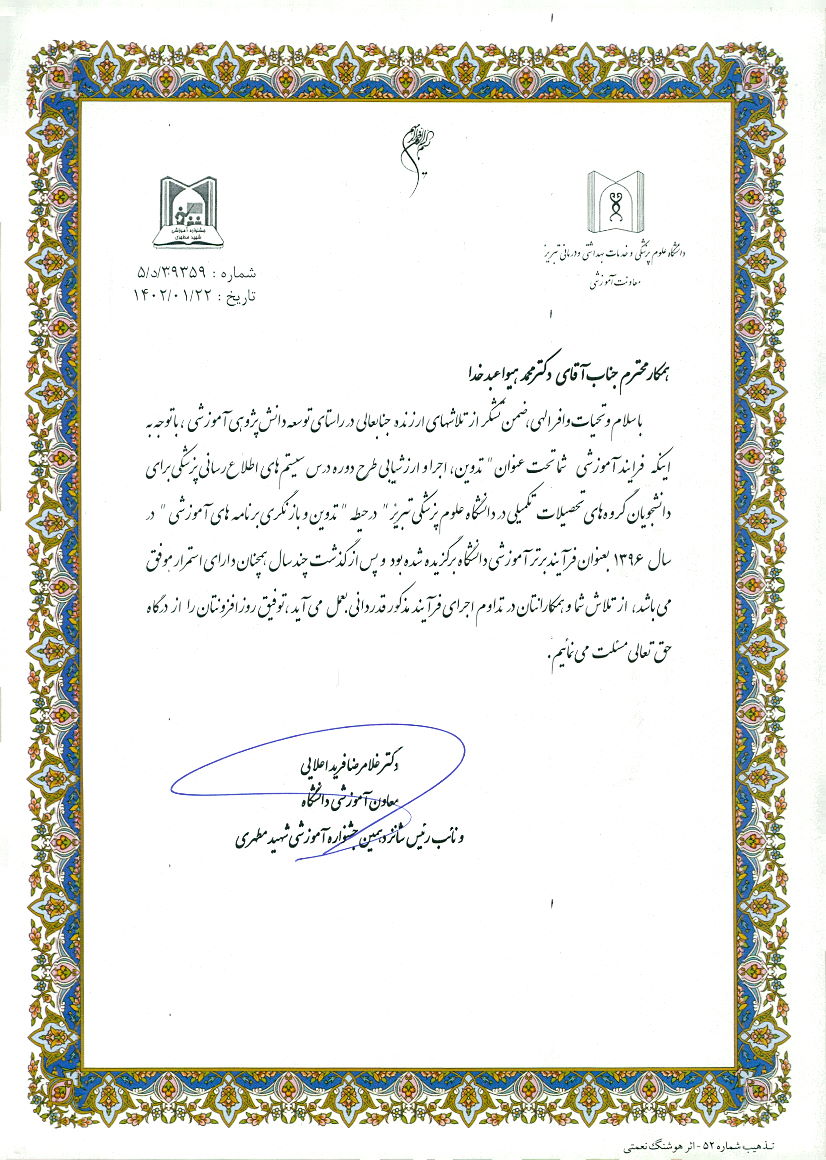 بسم الله الرحمن الرحیم
دانشگاه علوم پزشکی و خدمات بهداشتی و درمانی تبریز
معاونت آموزشی
جشنواره آموزشی
شهید مطهری
شماره : ۵/د/۳۹۳۵۹
تاریخ : ۱۴۰۲/۰۱/۲۲
همکار محترم جناب آقای دکتر محمد هیوا عبدخدا
با سلام و تحیات وافر الهی، ضمن تشکر از تلاشهای ارزنده جنابعالی در راستای توسعه دانش پژوهی آموزشی ، با توجه به
اینکه فرایند آموزشی شما تحت عنوان " تدوین، اجرا و ارزشیابی طرح دوره درس سیستم های اطلاع رسانی پزشکی برای
دانشجویان گروه های تحصیلات تکمیلی در دانشگاه علوم پزشکی تبریز " در حیطه " تدوین و بازنگری برنامه های آموزشی " در
سال ۱۳۹۶ بعنوان فرآیند برتر آموزشی دانشگاه برگزیده شده بود و پس از گذشت چند سال همچنان دارای استمرار موفق
می باشد، از تلاش شما و همکارانتان در تداوم اجرای فرآیند مذکور قدردانی بعمل می آید ، توفیق روزافزونتان را از درگاه
حق تعالی مسئلت می نمائیم.
دکتر غلامرضا فرید اعلایی
معاون آموزشی دانشگاه
و نائب رئیس شانزدهمین جشنواره آموزشی شهید مطهری
تذهیب شماره ۵۲ - اثر هوشنگ نعمتی